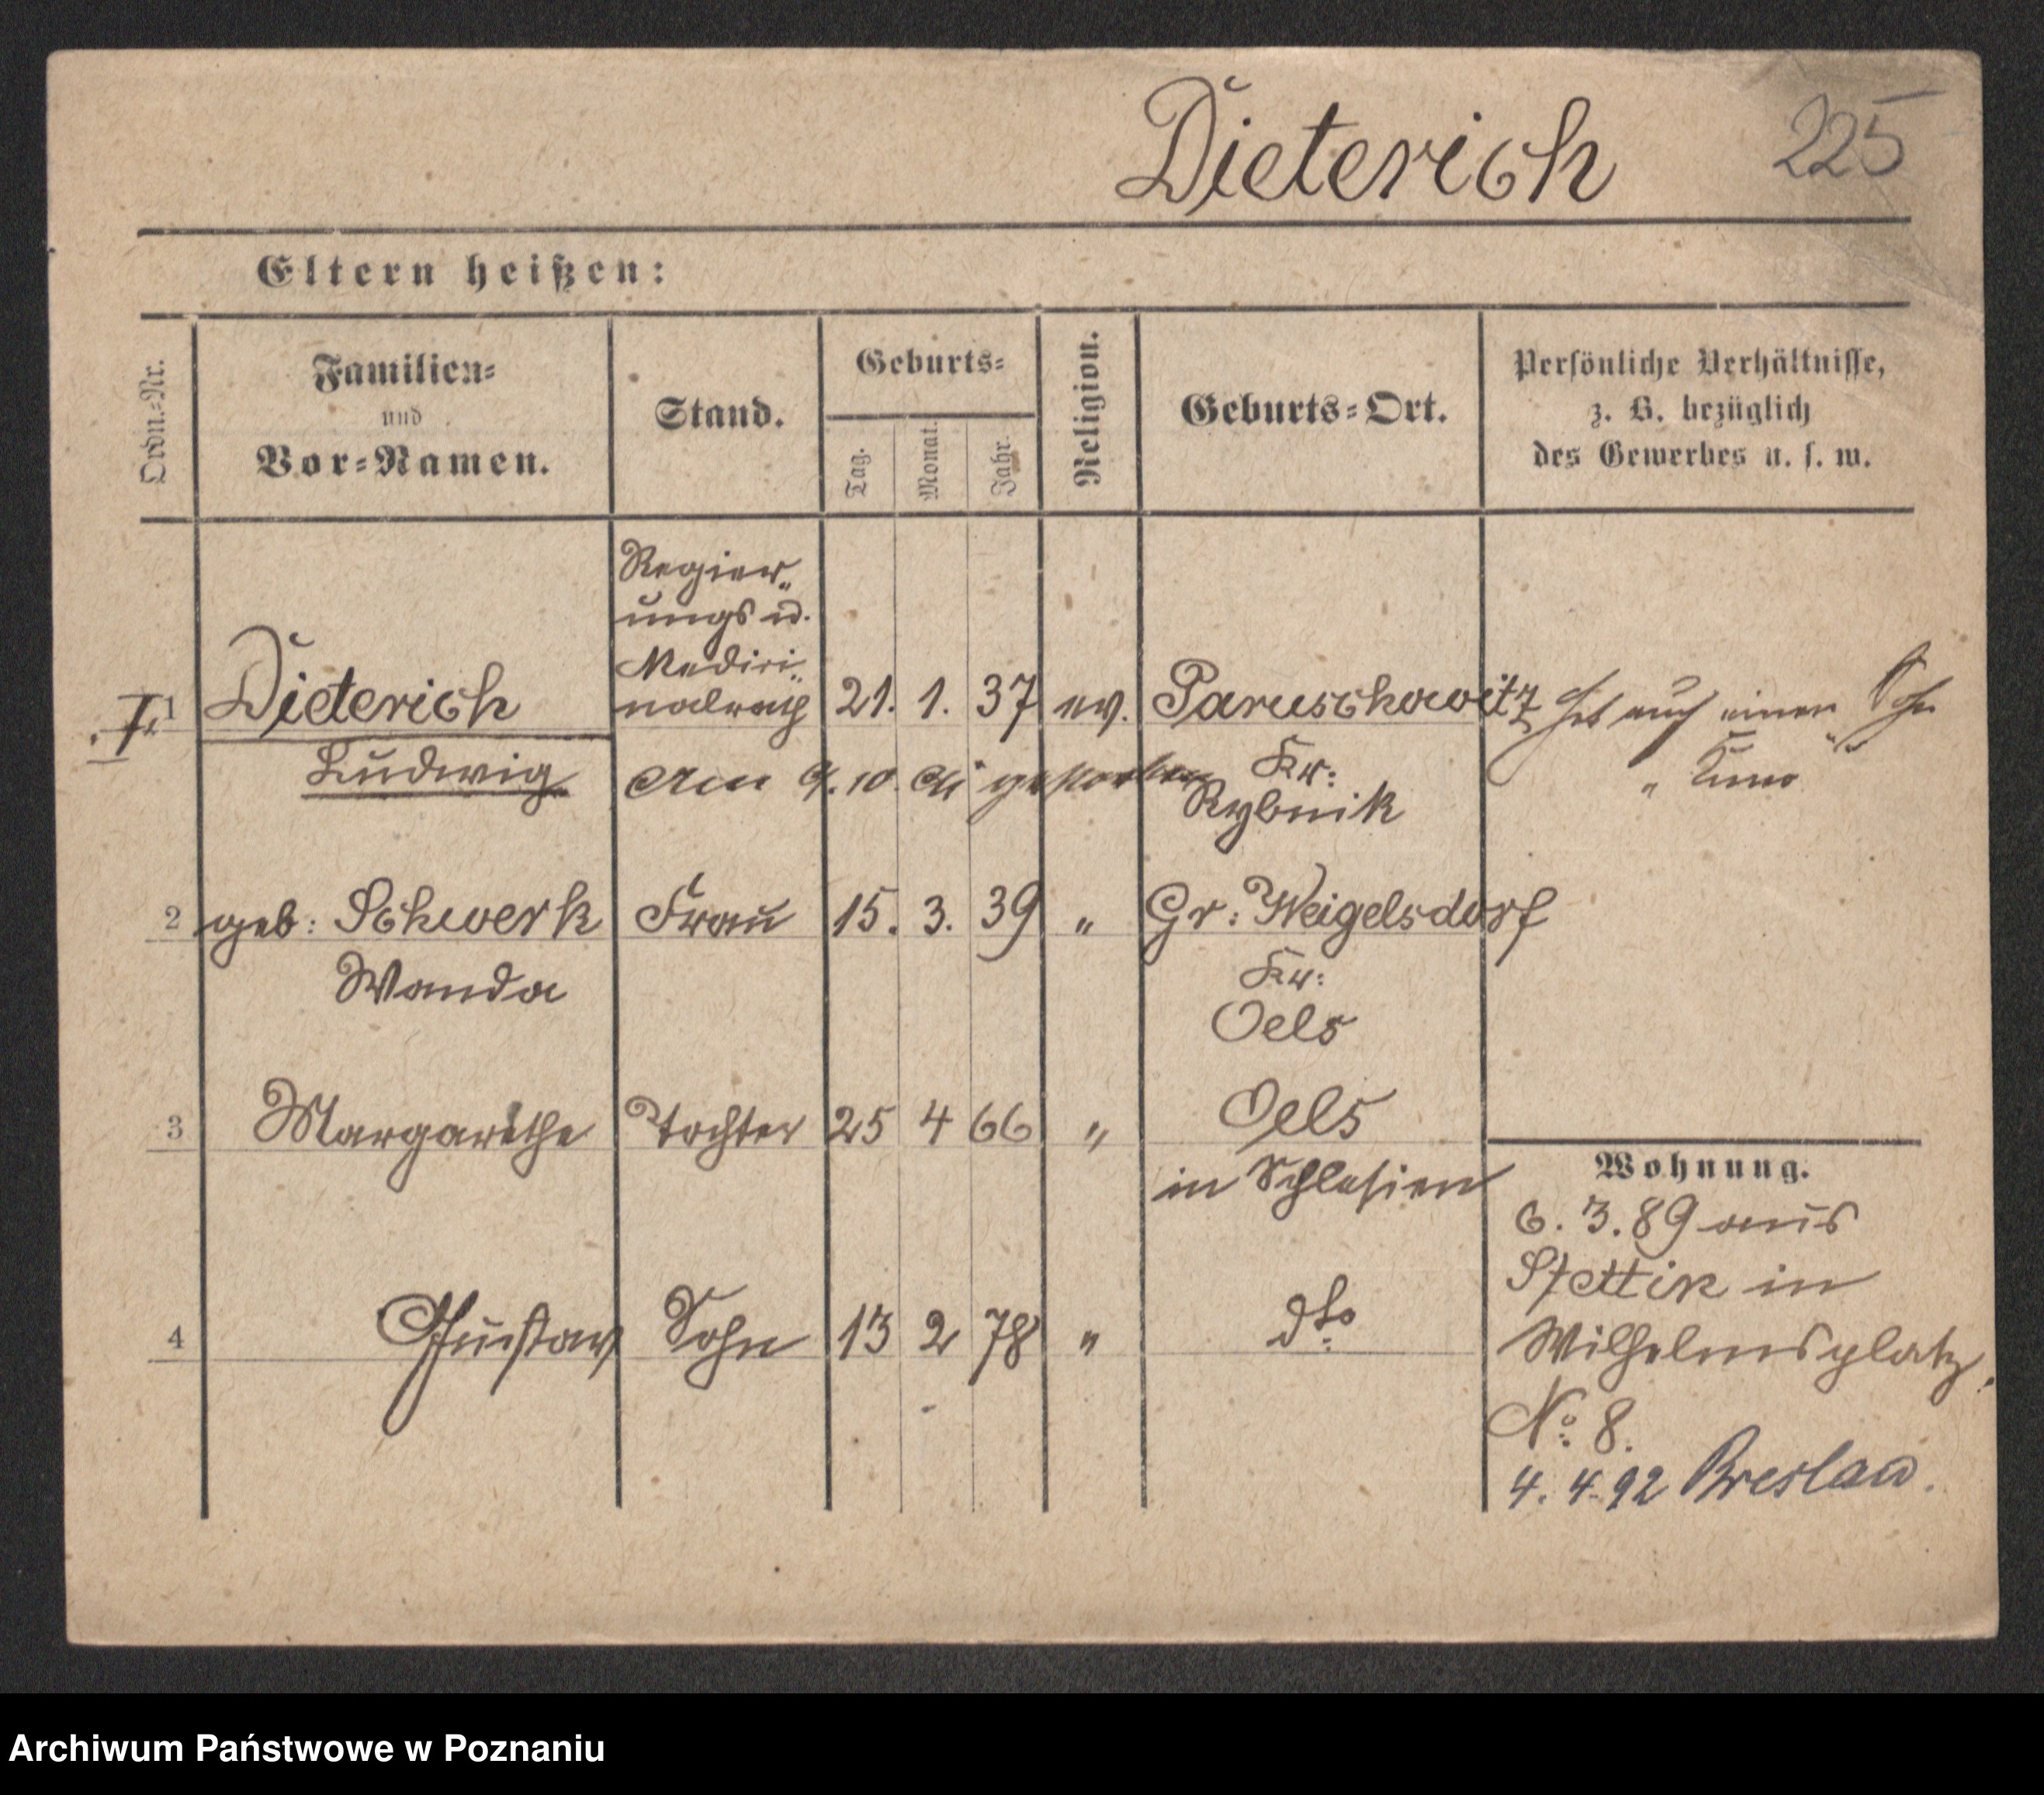 Dieterich 225
Eltern heißen:
Ordn.=Nr.
Familien=
und
Vor=Namen.
Stand.
Geburts=
Tag.
Monat.
Jahr.
Religion.
Geburts=Ort.
Persönliche Verhältnisse,
z. B. bezüglich
des Gewerbes u. s. w.
Regier„
ungs u.
Medizi„
1 Dieterich nalrath 21. 1. 37 ev. Paruschowitz hat auch einen Sohn
Ludwig Am 9. 10. gestorben Kr: „ Kuno
Rybnik
2 geb: Schwerk Frau 15. 3. 39 „ Gr: Weigelsdorf
Wanda Kr:
Oels
3 Margarethe Tochter 25 4 66 „ Oels
in Schlesien
4 Gustav Sohn 13 2 78 „ dto
Wohnung.
6. 3. 89 aus
Stettin in
Wilhelmsplatz.
No. 8.
4. 4. 92 Breslau.
Archiwum Państwowe w Poznaniu